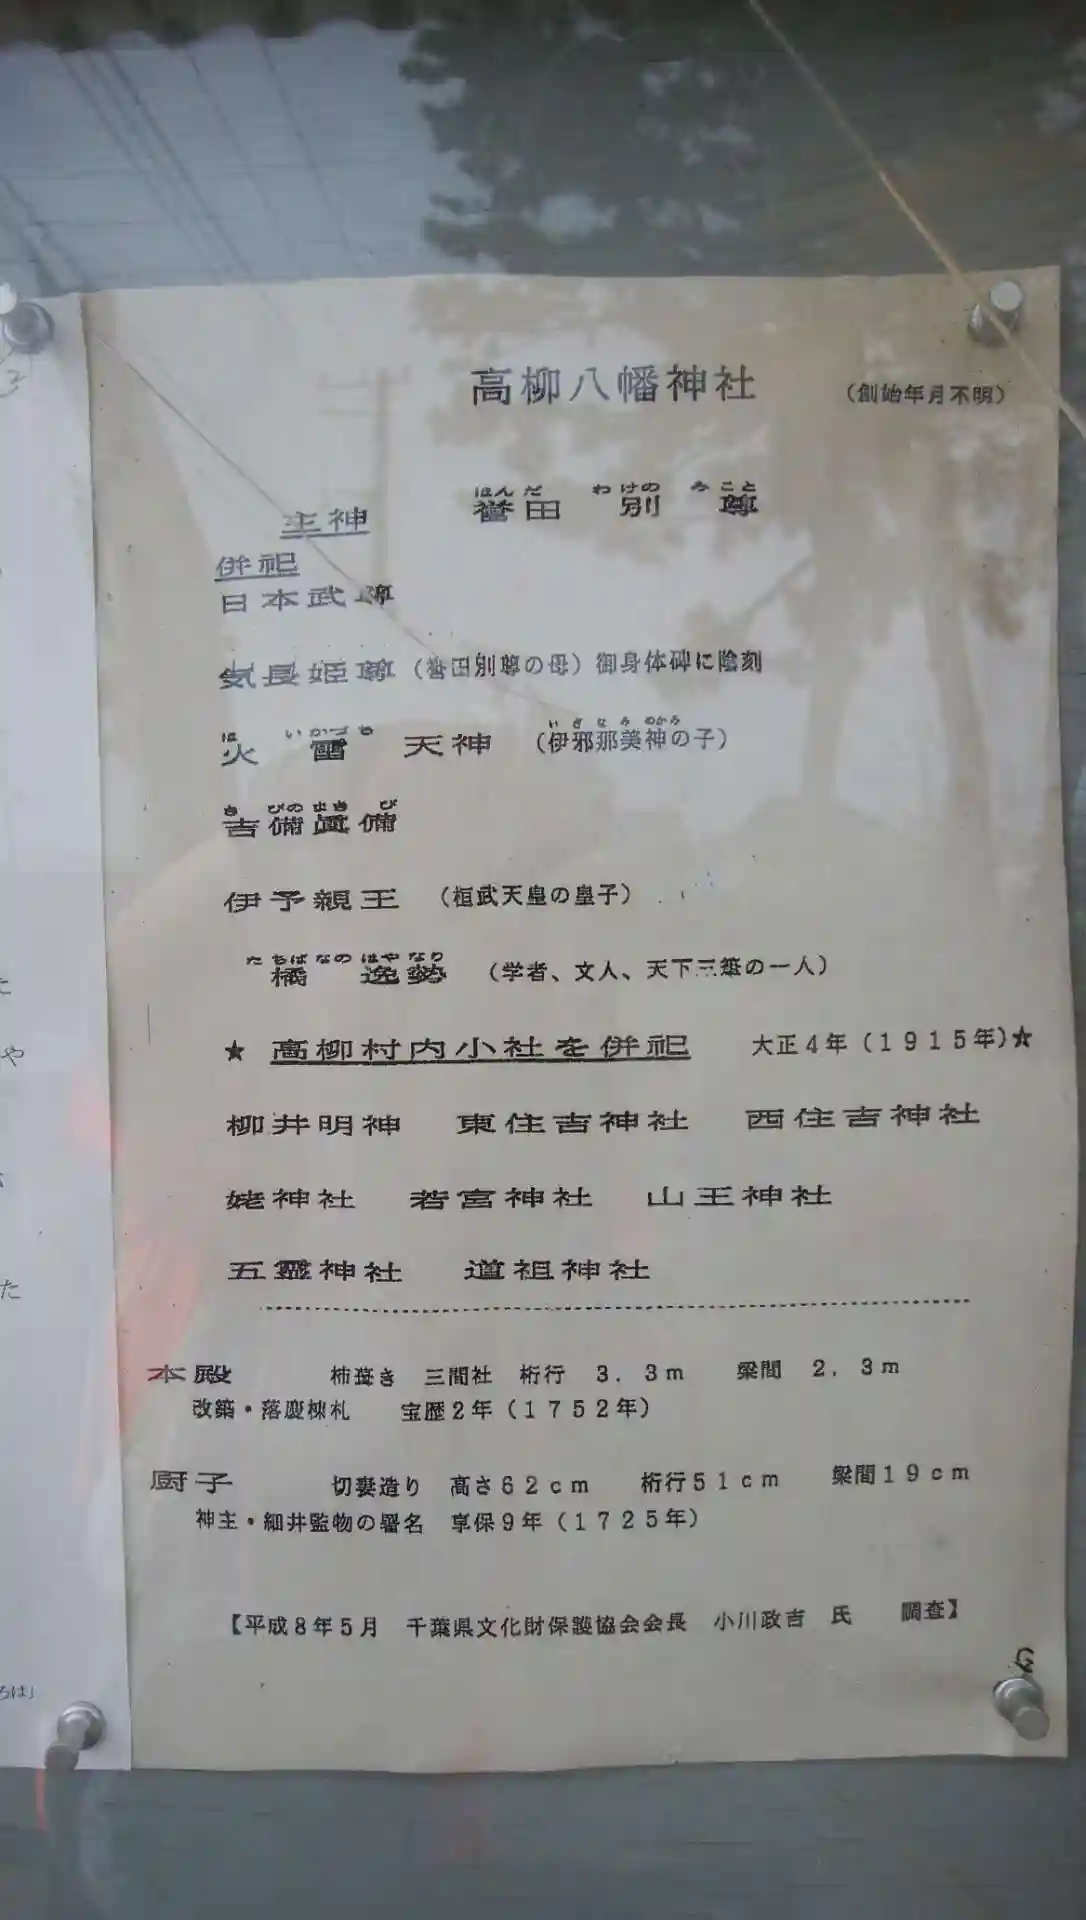 高柳八幡神社 (創始年月不明)
ほんだ わけの みこと
主神 誉田 別 尊
併祀
日本武尊
気長姫尊 (誉田別尊の母) 御身体碑に陰刻
ほ いかづち いざなみ のかみ
火 雷 天神 (伊邪那美神の子)
き びの まき び
吉備眞備
伊予親王 (桓武天皇の皇子)
たちばなの はやなり
橘 逸勢 (学者、文人、天下三筆の一人)
★ 高柳村内小社を併祀 大正4年(1915年)★
柳井明神 東住吉神社 西住吉神社
姥神社 若宮神社 山王神社
五霊神社 道祖神社
本殿 柿葺き 三間社 桁行 3.3m 梁間 2.3m
改築・落慶棟札 宝歴2年(1752年)
厨子 切妻造り 高さ62cm 桁行51cm 梁間19cm
神主・細井監物の署名 享保9年(1725年)
【平成8年5月 千葉県文化財保護協会会長 小川政吉 氏 調査】
や
た
ろは」